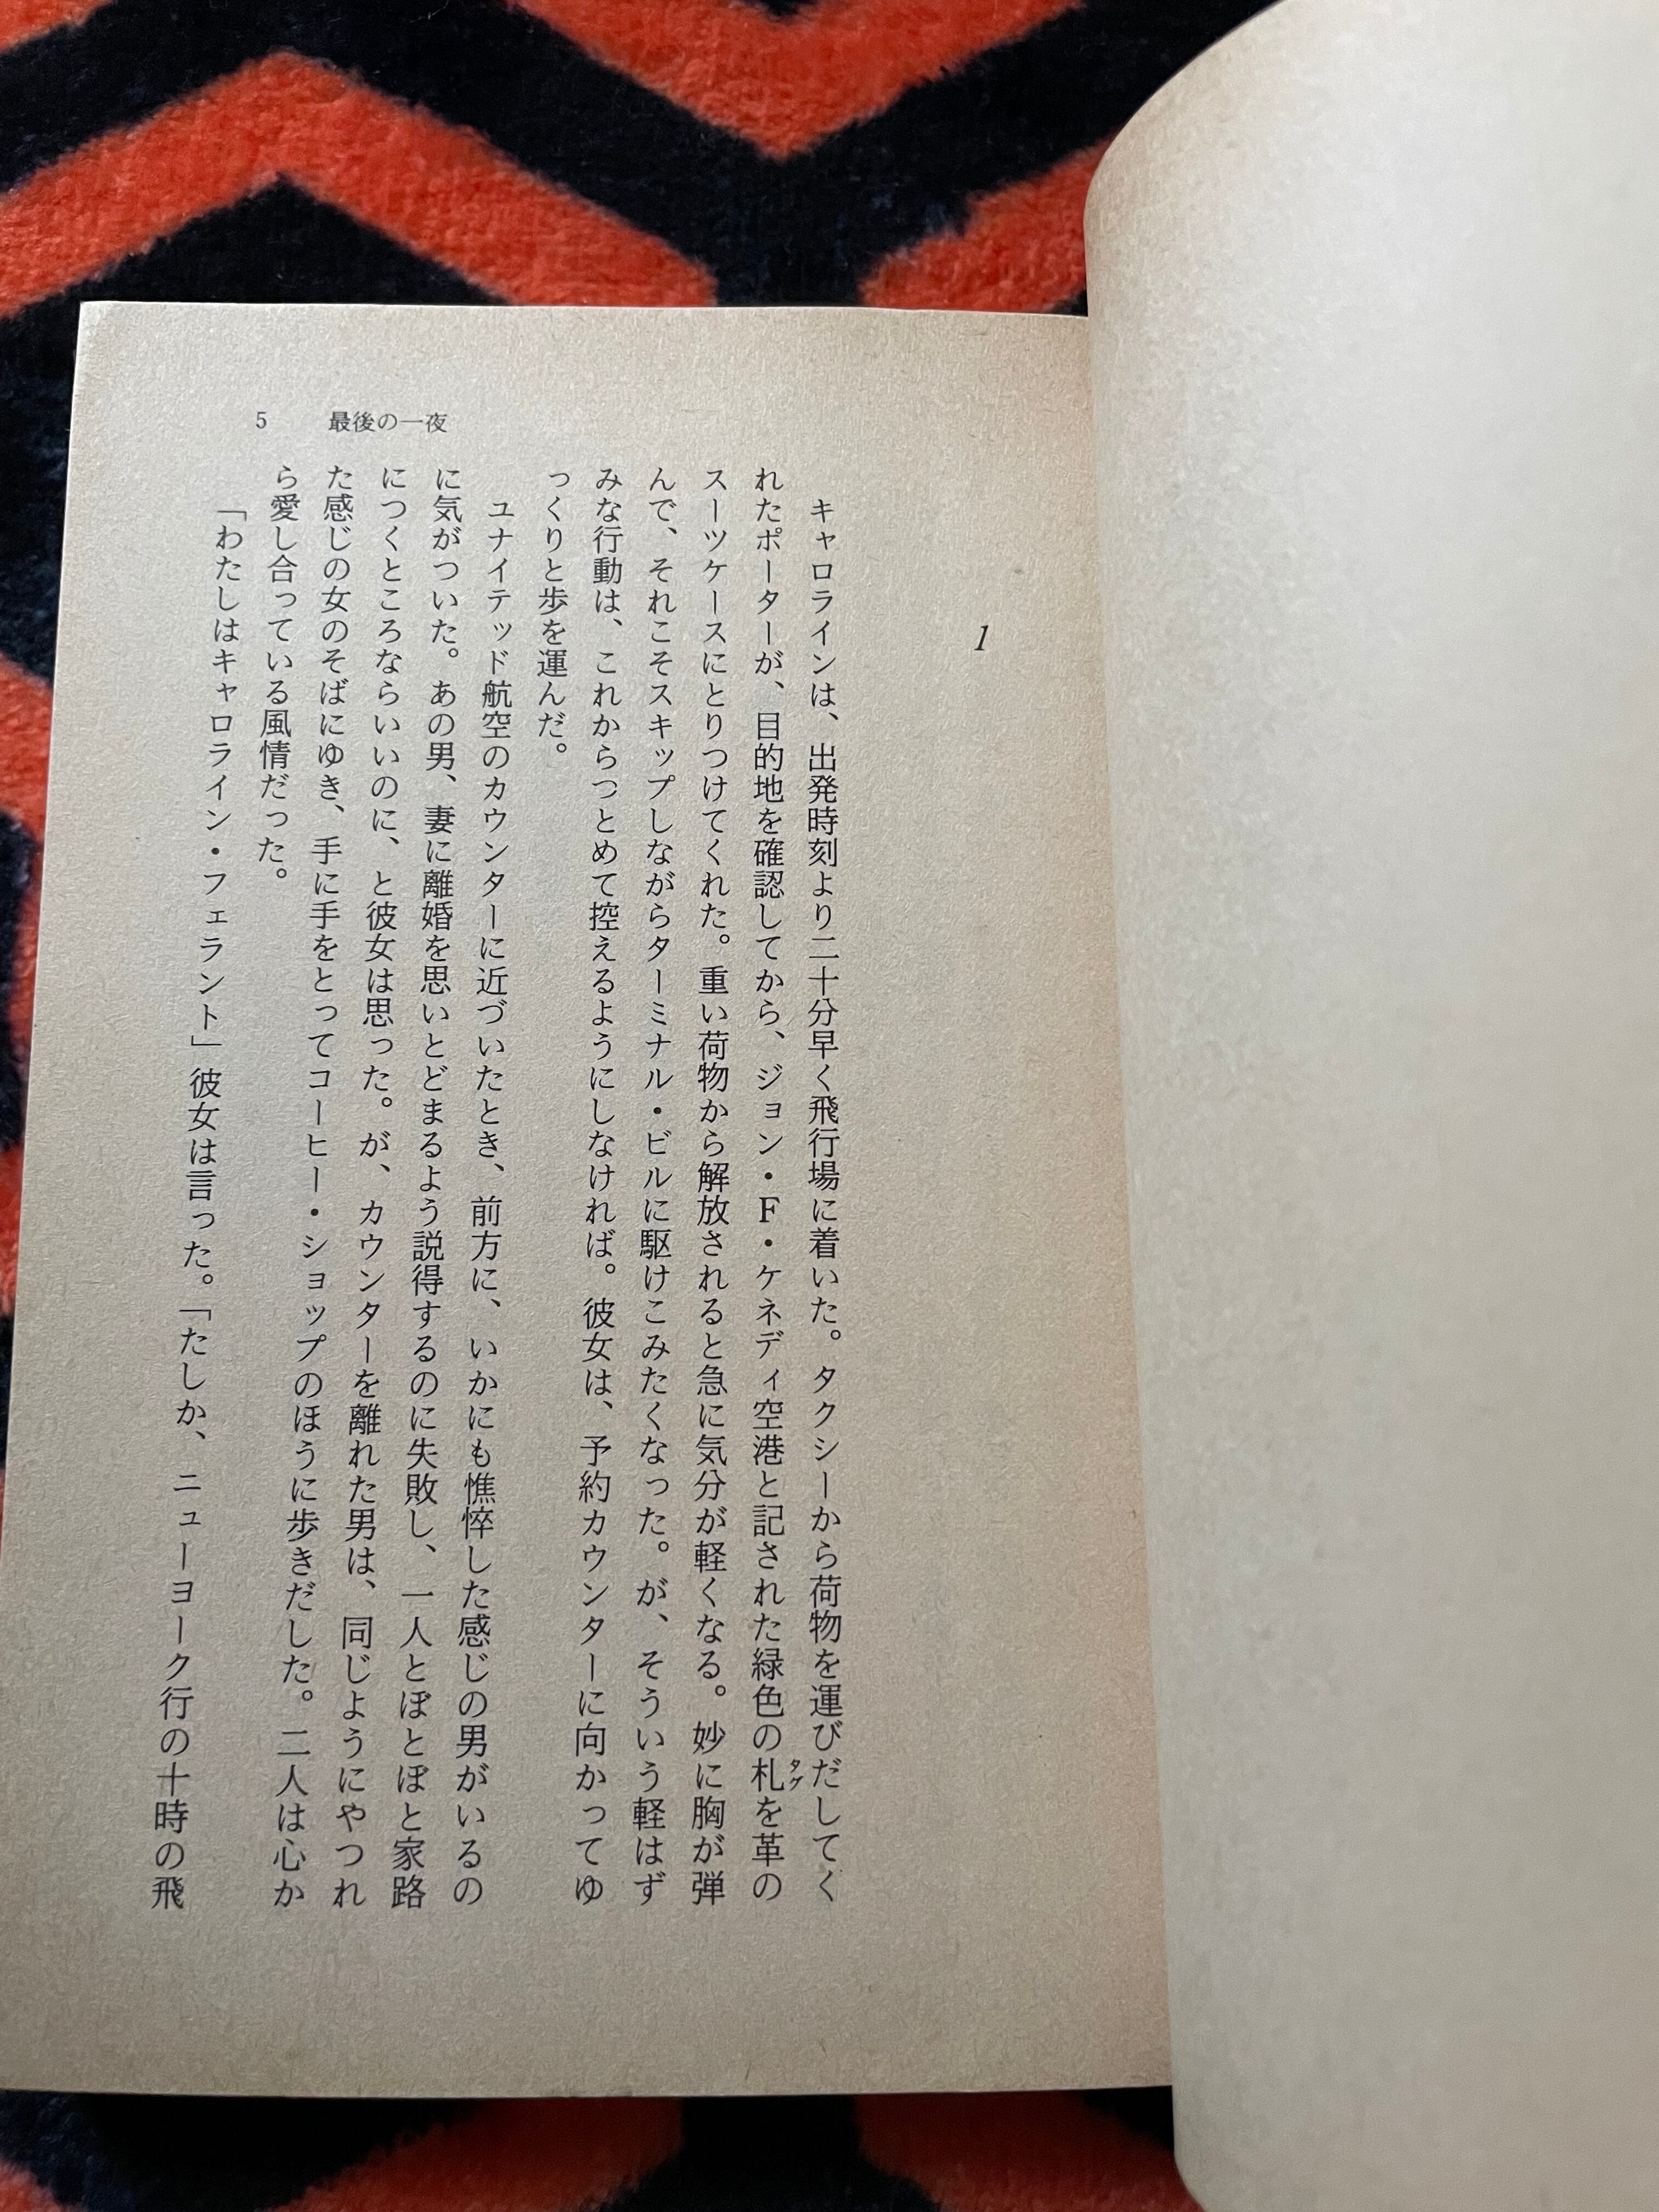 5 最後の一夜
1
キャロラインは、出発時刻より二十分早く飛行場に着いた。タクシーから荷物を運びだしてく
れたポーターが、目的地を確認してから、ジョン・F・ケネディ空港と記された緑色の札を革の
タグ
スーツケースにとりつけてくれた。重い荷物から解放されると急に気分が軽くなる。妙に胸が弾
んで、それこそスキップしながらターミナル・ビルに駆けこみたくなった。が、そういう軽はず
みな行動は、これからつとめて控えるようにしなければ。彼女は、予約カウンターに向かってゆ
っくりと歩を運んだ。
ユナイテッド航空のカウンターに近づいたとき、前方に、いかにも憔悴した感じの男がいるの
に気がついた。あの男、妻に離婚を思いとどまるよう説得するのに失敗し、一人とぼとぼと家路
につくところならいいのに、と彼女は思った。が、カウンターを離れた男は、同じようにやつれ
た感じの女のそばにゆき、手に手をとってコーヒー・ショップのほうに歩きだした。二人は心か
ら愛し合っている風情だった。
「わたしはキャロライン・フェラント」彼女は言った。「たしか、ニューヨーク行の十時の飛